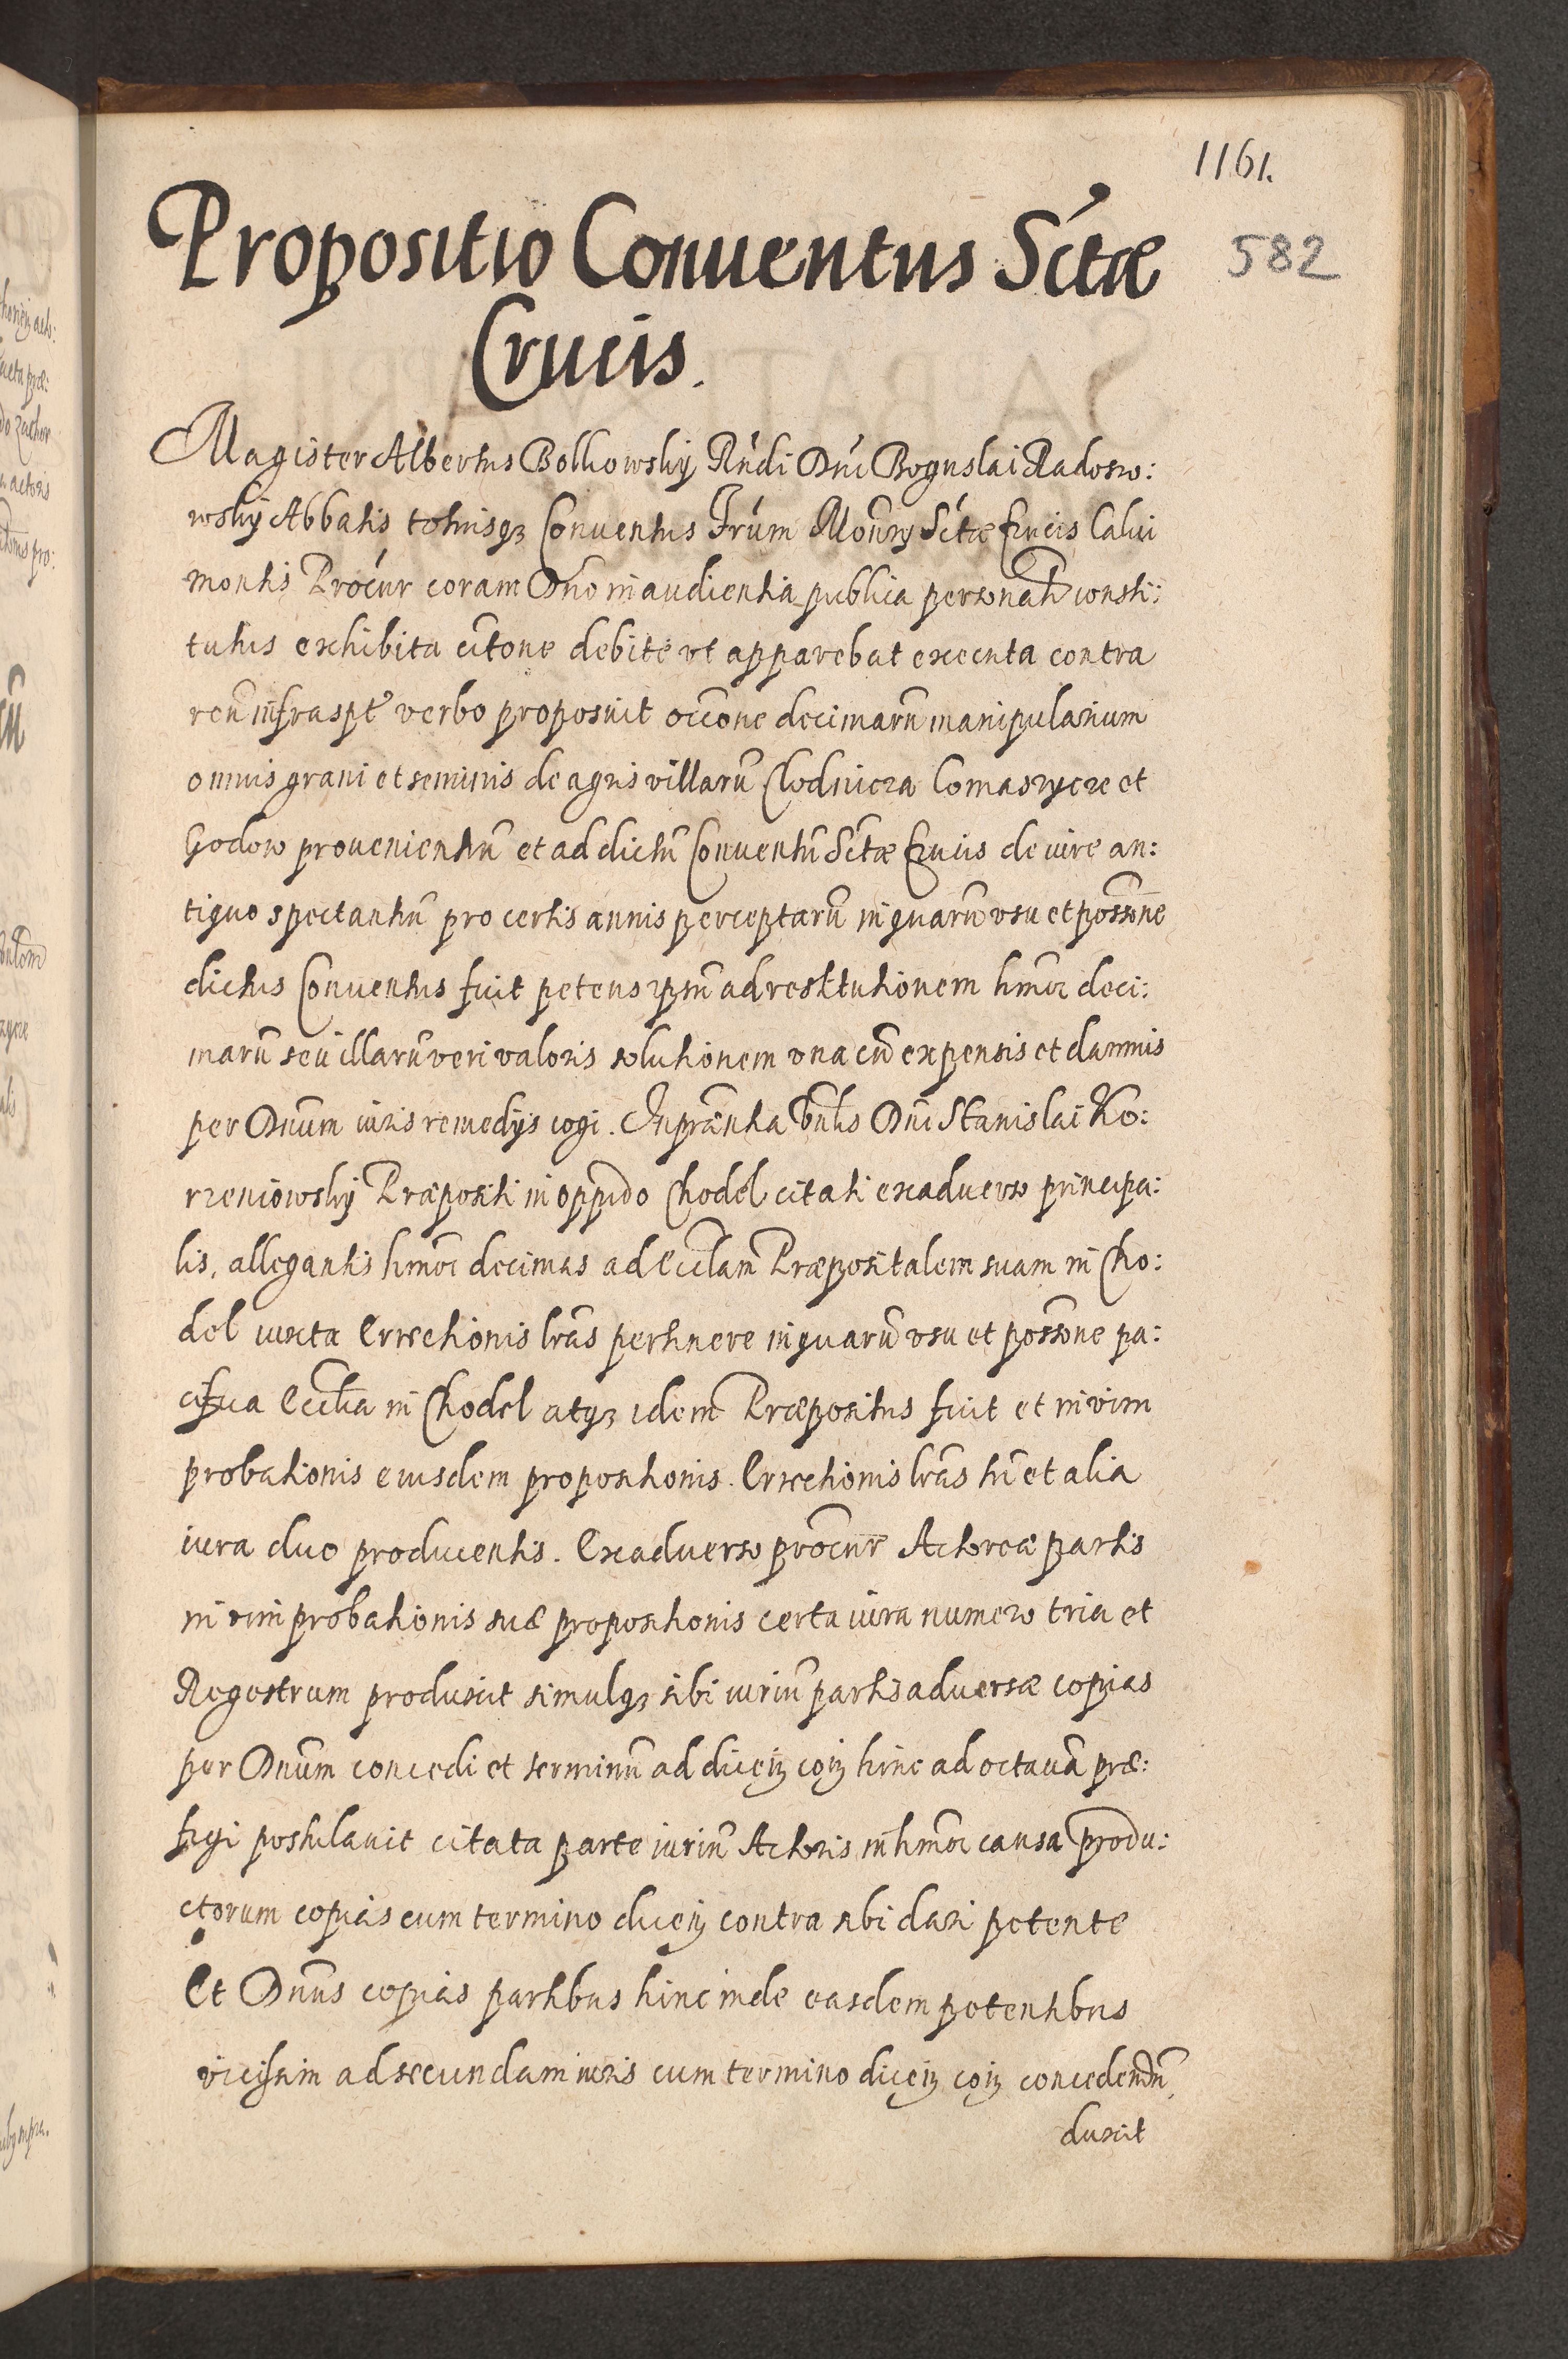 1161.
582
Propositio Conuentus S̃ctæ
Crucis.
Magister Albertus Bolkowskÿ Rñdi Dñi Boguslai Radosω:
wskÿ Abbatis totiusqꝫ Conuentus Frũm Moñrÿ S̃ctæ Crucis Calui
montis Procũr coram Dño in audientia publica personalr̃ consti:
tutus exhibita citõne debite vt apparebat executa contra
reũ infraspt̃ verbo proposuit occõne decimarũ manipularium
omnis grani et seminis de agris villarũ Chodnicza Comaszycze et
Godow prouenientiũ et ad dictũ Conuentũ S̃ctæ Crucis de iure an:
tiquo spectantiũ pro certis annis perceptarũ in quarũ vsu et possõne
dictus Conuentus fuit petens ipsũ ad restitutionem hmõi deci:
marũ seu illarũ veri valoris solutionem vna cũ expensis et damnis
per Dnũm iuris remedÿs cogi. In prãntia Vnlis Dñi Stanislai Ko:
rzeniowskÿ Præpositi in oppido Chodel citati exaduerso principa:
lis, allegantis hmõi decimas ad Ecclãm Præpositalem suam in Cho:
del iuxta Errectionis lrãs pertinere in quarũ vsu et possõne pa:
cifica Ecclĩa in Chodel atqꝫ idem Præpositus fuit et in vim
probationis eiusdem propositionis. Errectionis lrãs tũ et alia
iura duo producentis. Exaduerso procũr Actoreæ partis
in vim probationis suæ propositionis certa iura numero tria et
Regestrum produxit simulqꝫ sibi iuriũ partis aduersæ copias
per Dnũm concedi et terminũ ad diceñ coiꝫ hinc ad octauã præ:
figi postulauit citata parte iuriũ Actoris in hmõi causa produ:
ctorum copias cum termino diceñ contra sibi dari petente
Et Dnũs copias partibus hinc inde easdem petentibus
vicissim ad secundam iuris cum termino diceñ coiꝫ concedendũ
duxit